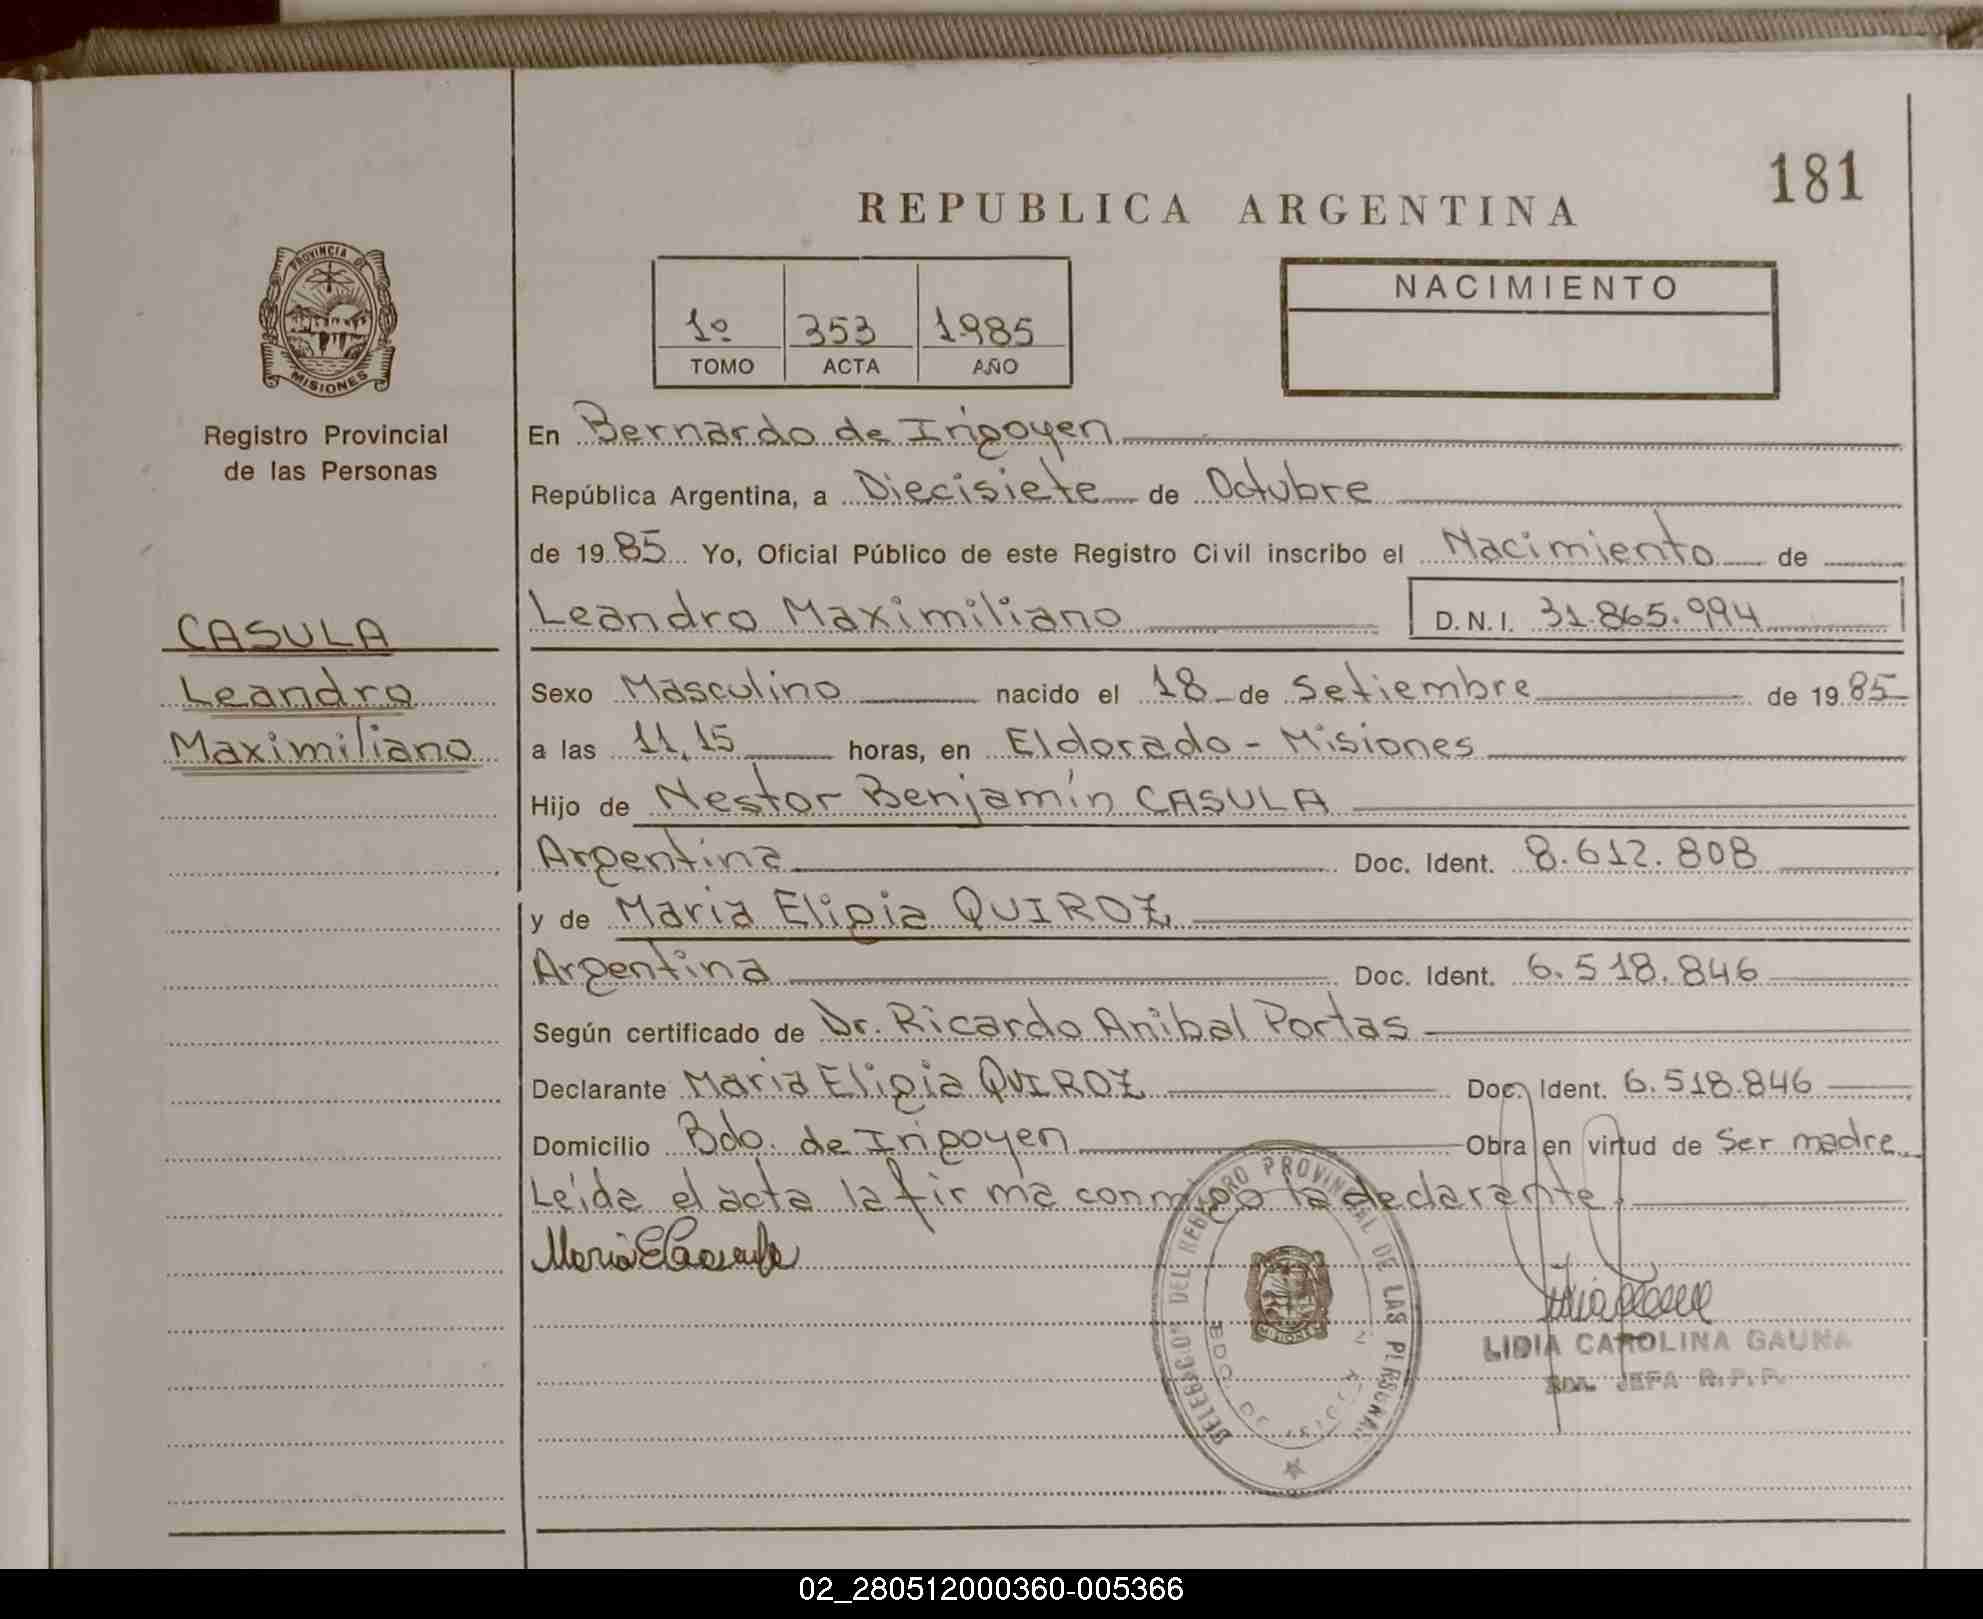 181
REPUBLICA ARGENTINA
PROVINCIA DE
MISIONES
Registro Provincial
de las Personas
1º 353 1985
TOMO ACTA AÑO
NACIMIENTO
En Bernardo de Irigoyen
República Argentina, a Diecisiete de Octubre
de 1985 Yo, Oficial Público de este Registro Civil inscribo el Nacimiento de
Leandro Maximiliano D.N.I. 31.865.994
CASULA
Leandro
Maximiliano
Sexo Masculino nacido el 18 de Setiembre de 1985
a las 11,15 horas, en Eldorado - Misiones
Hijo de Nestor Benjamín CASULA
Argentina Doc. Ident. 8.612.808
y de Maria Eligia QUIROZ
Argentina Doc. Ident. 6.518.846
Según certificado de Dr. Ricardo Anibal Portas
Declarante Maria Eligia QUIROZ Doc. Ident. 6.518.846
Domicilio Bdo. de Irigoyen Obra en virtud de Ser madre
Leída el acta la firma conmigo la declarante.
DEL REGISTRO PROVINCIAL DE LAS PERSONAS
BDO. DE
MISIONES
LIDIA CAROLINA GAUNA
JEFA R.P.P.
02_280512000360-005366